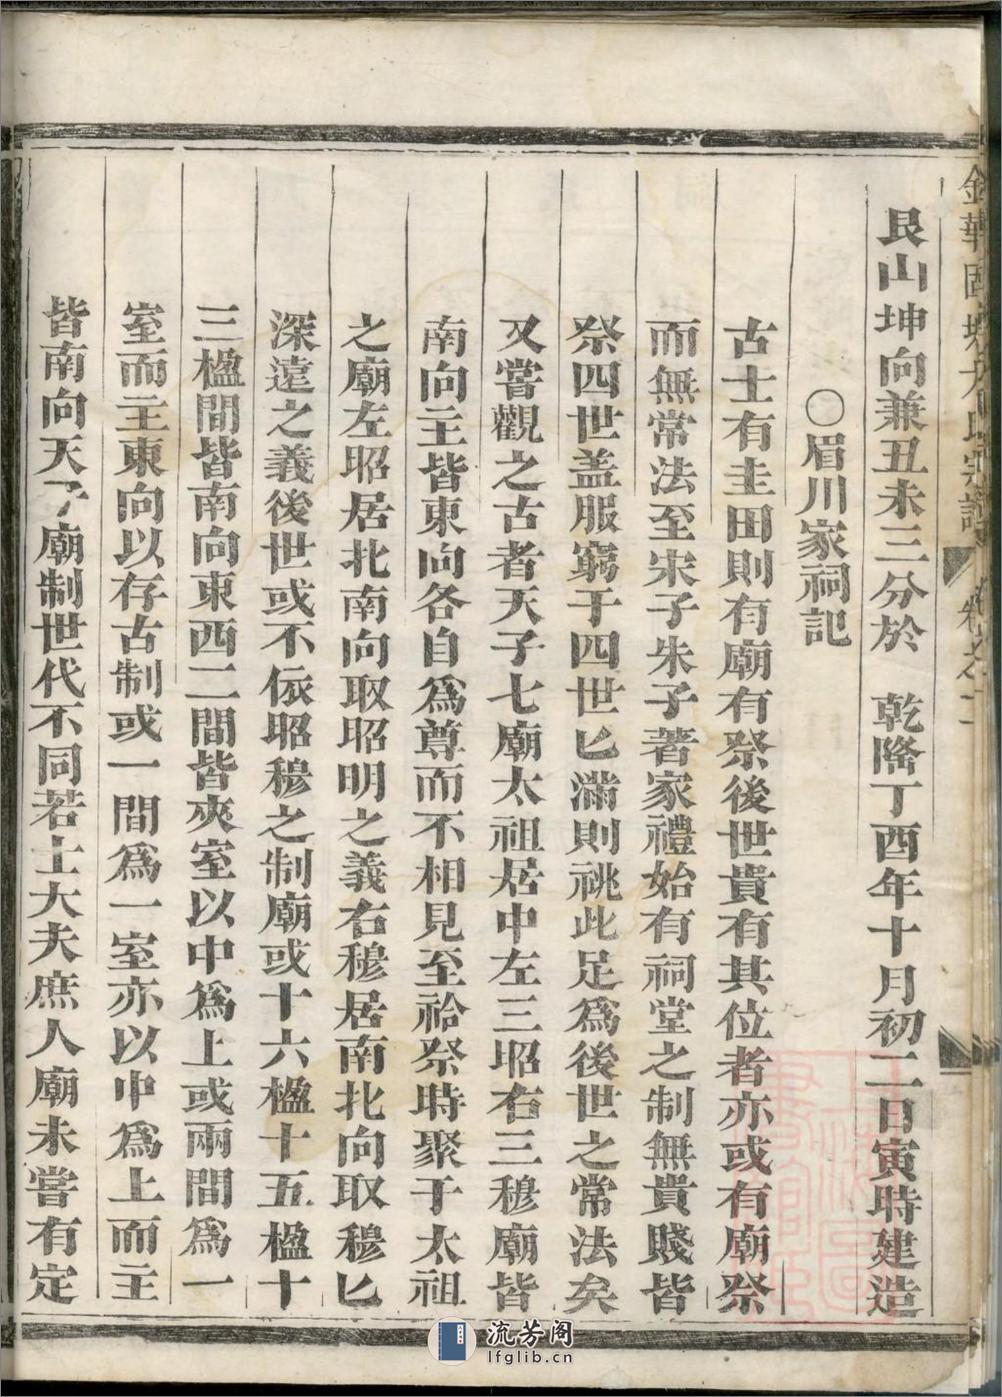 金華
宗譜
卷之一
艮山坤向兼丑未三分於　乾隆丁酉年十月初二日寅時建造
〇眉川家祠記
古士有圭田則有廟有祭後世貴有其位者亦或有廟祭
而無常法至宋子朱子著家禮始有祠堂之制無貴賤皆
祭四世盖服窮于四世匕滿則祧此足為後世之常法矣
又嘗觀之古者天子七廟太祖居中左三昭右三穆廟皆
南向主皆東向各自為尊而不相見至祫祭時聚于太祖
之廟左昭居北南向取昭明之義右穆居南北向取穆匕
深遠之義後世或不依昭穆之制廟或十六楹十五楹十
三楹間皆南向東西二間皆夾室以中為上或兩間為一
室而主東向以存古制或一間為一室亦以中為上而主
皆南向天子廟制世代不同若士大夫庶人廟未嘗有定
流芳阁
lfglib.cn